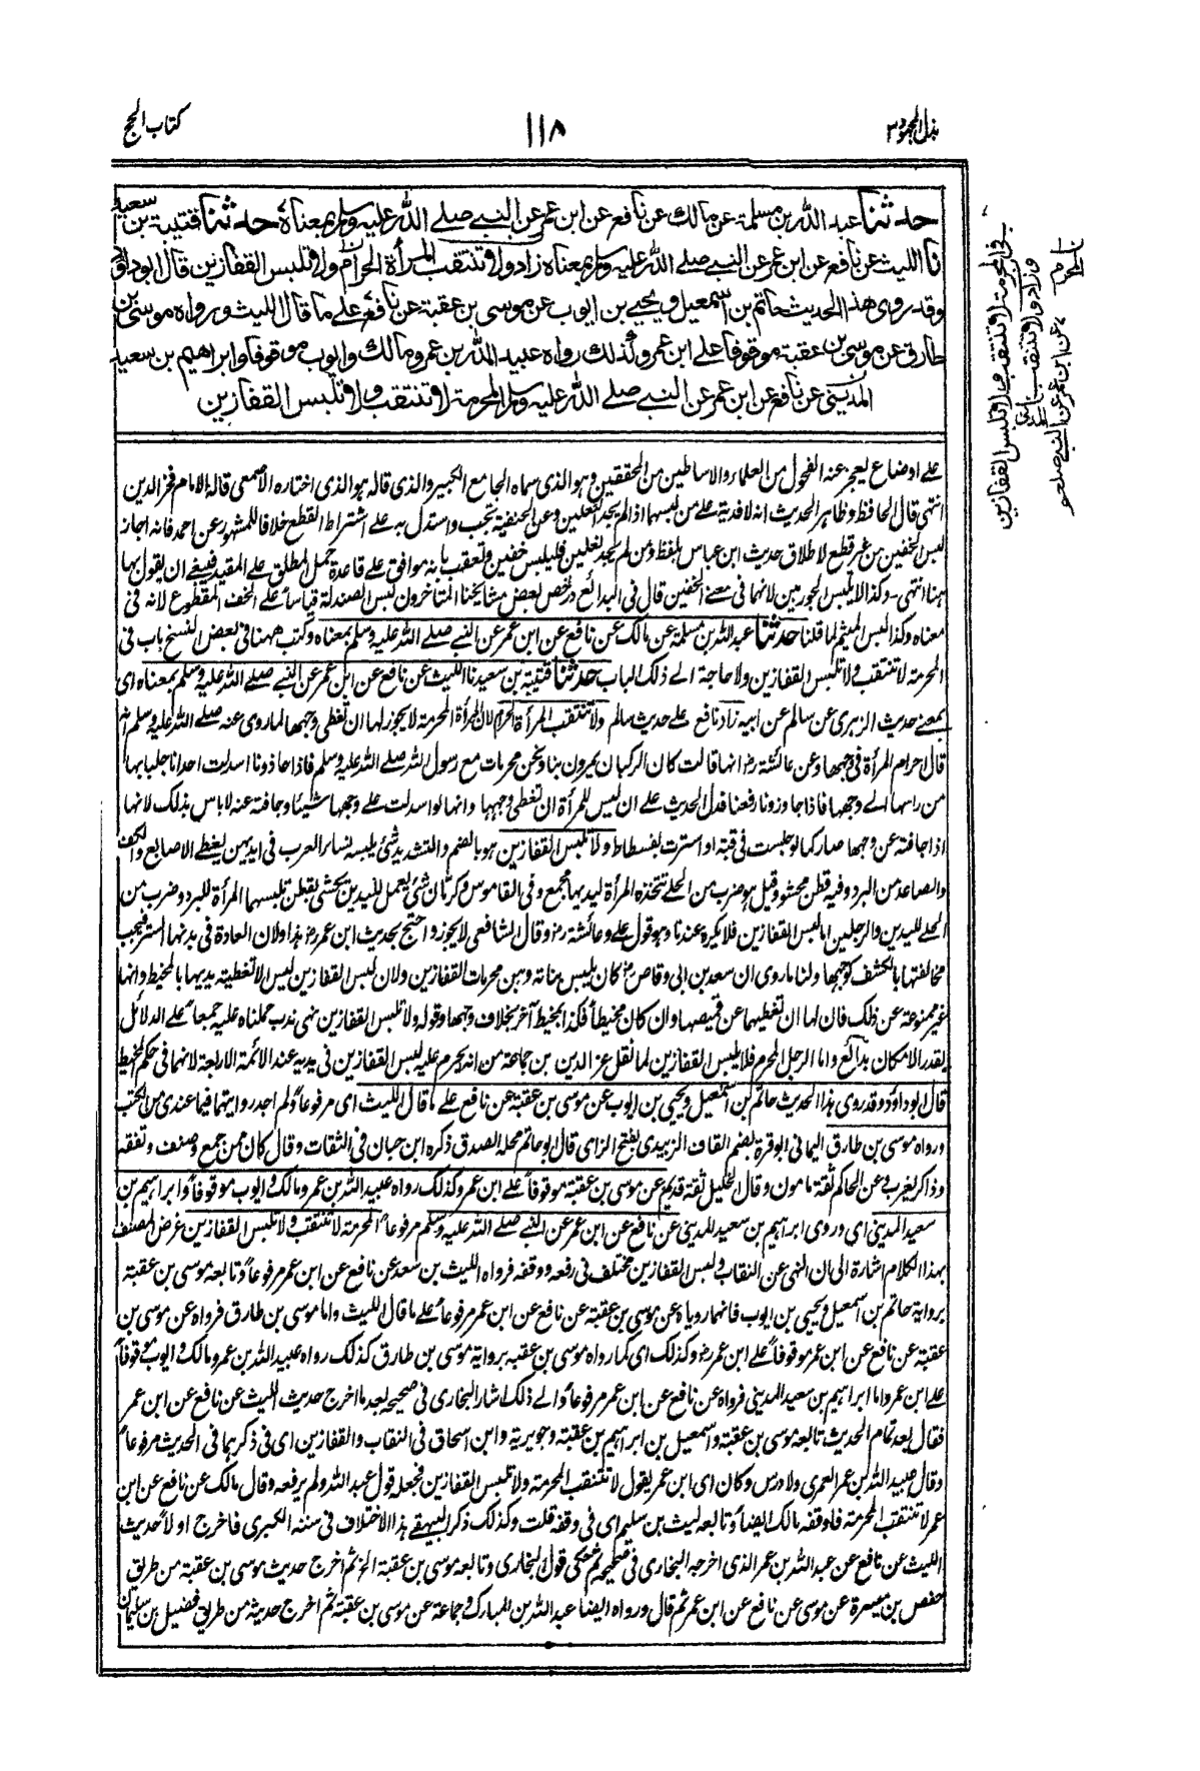 بذل المجهود ٣
١١٨
كتاب الحج
حدثنا عبد الله بن مسلمة عن مالك عن نافع عن ابن عمر عن النبي صلے الله عليه وسلم بمعناه حدثنا قتيبة بن سعيد
نا الليث عن نافع عن ابن عمر عن النبي صلے الله عليه وسلم بمعناه زاد ولا تنتقب المرأة الحرام ولا تلبس القفازين قال ابو داؤد
وقد روى هذا الحديث حاتم بن اسمعيل ويحيے بن ايوب عن موسى بن عقبة عن نافع علے ما قال الليث ورواه موسى بن
طارق عن موسى بن عقبة موقوفا علے ابن عمر وكذلك رواه عبيد الله بن عمر ومالك وايوب موقوفا وابراهيم بن سعيد
المديني عن نافع عن ابن عمر عن النبي صلے الله عليه وسلم المحرمة لا تنتقب ولا تلبس القفازين
علے اوضاع يعجز عنه الفحول من العلماء والاساطين من المحققين وهو الذي سماه الجامع الكبير والذي قاله هو الذي اختاره الاصمعي قاله الامام فخر الدين
انتهى قال الحافظ وظاهر الحديث انه لا فدية علے من لبسهما اذا لم يجد النعلين وعن الحنفية تجب واستدل به علے اشتراط القطع خلافا للمشهور عن احمد فانه اجاز
لبس الخفين من غير قطع لاطلاق حديث ابن عباس بلفظ ومن لم يجد نعلين فليلبس خفين وتعقب بانه موافق علے قاعدة حمل المطلق علے المقيد فينبغي ان يقول بها
هنا انتهى - وكذا لا يلبس الجوربين لانهما في معنے الخفين قال في البدائع ورخص بعض مشايخنا المتاخرون لبس الصندلة قياسا علے الخف المقطوع لانه في
معناه وكذا لبس الميثم لما قلنا حدثنا عبد الله بن مسلمة عن مالك عن نافع عن ابن عمر عن النبي صلے الله عليه وسلم بمعناه وكتب ههنا في بعض النسخ باب في
المحرمة لا تنتقب ولا تلبس القفازين ولا حاجة الے ذلك الباب حدثنا قتيبة بن سعيد نا الليث عن نافع عن ابن عمر عن النبي صلے الله عليه وسلم بمعناه اي
بمعنے حديث الزهري عن سالم عن ابيه زاد نافع علے حديث سالم ولا تنتقب المرأة الحرام لان المرأة المحرمة لا يجوز لها ان تغطي وجهها لما روي عنه صلے الله عليه وسلم انه
قال احرام المرأة في وجهها وعن عائشة رض انها قالت كان الركبان يمرون بنا ونحن محرمات مع رسول الله صلے الله عليه وسلم فاذا حاذونا اسدلت احدانا جلبابها
من راسها الے وجهها فاذا جاوزونا رفعنا فدل الحديث علے ان ليس للمرأة ان تغطي وجهها وانها لو اسدلت علے وجهها شيئا وجافته عنه لا باس بذلك لانها
اذا جافته عن وجهها صار كما لو جلست في قبة او استترت بفسطاط ولا تلبس القفازين هو بالضم والتشديد شئ يلبسه نساء العرب في ايديهن يغطے الاصابع والكف
والساعد من البرد وفيه قطن محشو وقيل هو ضرب من الحلے تتخذه المرأة ليديها مجمع وفي القاموس وكرمان شئ يعمل لليدين يحشى بقطن تلبسهما المرأة للبرد وضرب من
الحلے لليدين والرجلين اما لبس القفازين فلا يكره عندنا وهو قول علے وعائشة رض وقال الشافعي لا يجوز واحتج بحديث ابن عمر رض هذا ولان العادة في بدنها الستر فيجب
مخالفتها بالكشف كوجهها ولنا ما روي ان سعد بن ابي وقاص رض كان يلبس بناته وهن محرمات القفازين ولان لبس القفازين ليس الا تغطية يديها بالمخيط وانها
غير ممنوعة عن ذلك فان لها ان تغطيهما عن قميصها وان كان مخيطا فكذا بمخيط آخر بخلاف وجهها وقوله ولا تلبس القفازين نهي ندب حملناه عليه جمعا علے الدلائل
بقدر الامكان بدائع واما الرجل المحرم فلا يلبس القفازين لما نقل عز الدين بن جماعة من انه يحرم عليه لبس القفازين في يديه عند الائمة الاربعة لانهما في حكم المخيط
قال ابو داؤد وقد روى هذا الحديث حاتم بن اسمعيل ويحيى بن ايوب عن موسى بن عقبة عن نافع علے ما قال الليث اي مرفوعا ولم اجد روايتهما فيما عندي من الكتب
ورواه موسى بن طارق اليماني ابو قرة بضم القاف الزبيدي بفتح الزاى قال ابو حاتم محله الصدق ذكره ابن حبان في الثقات وقال كان ممن جمع وصنف وتفقه
وذاكر يغرب وعن الحاكم ثقة مامون وقال الخليل ثقة قديم عن موسى بن عقبة موقوفا علے ابن عمر وكذلك رواه عبيد الله بن عمر ومالك وايوب موقوفا وابراهيم بن
سعيد المديني اي وروى ابراهيم بن سعيد المديني عن نافع عن ابن عمر عن النبي صلے الله عليه وسلم مرفوعا المحرمة لا تنتقب ولا تلبس القفازين غرض المصنف
بهذا الكلام اشارة الى ان النهي عن النقاب ولبس القفازين مختلف في رفعه ووقفه فرواه الليث بن سعد عن نافع عن ابن عمر مرفوعا وتابعه موسى بن عقبة
برواية حاتم بن اسمعيل ويحيى بن ايوب فانهما روياه عن موسى بن عقبة عن نافع عن ابن عمر مرفوعا علے ما قال الليث واما موسى بن طارق فرواه عن موسى بن
عقبة عن نافع عن ابن عمر موقوفا علے ابن عمر رض وكذلك اي كما رواه موسى بن عقبه برواية موسى بن طارق كذلك رواه عبيد الله بن عمر ومالك وايوب موقوفا
علے ابن عمر واما ابراهيم بن سعيد المديني فرواه عن نافع عن ابن عمر مرفوعا والے ذلك اشار البخاري في صحيحه بعد ما اخرج حديث الليث عن نافع عن ابن عمر
فقال بعد تمام الحديث تابعه موسى بن عقبة واسمعيل بن ابراهيم بن عقبة وجويرية وابن اسحاق في النقاب والقفازين اي في ذكرهما في الحديث مرفوعا
وقال عبيد الله بن عمر العمري ولا ورس وكان اي ابن عمر يقول لا تنتقب المحرمة ولا تلبس القفازين فجعله قول عبد الله ولم يرفعه وقال مالك عن نافع عن ابن
عمر لا تنتقب المحرمة فاوقفه مالك ايضا وتابعه ليث بن سليم اي في وقفه قلت وكذلك ذكر البيهقي هذا الاختلاف في سننه الكبرى فاخرج اولا حديث
الليث عن نافع عن عبد الله بن عمر الذي اخرجه البخاري في صحيحه ثم حكى قول البخاري وتابعه موسى بن عقبة الخ ثم اخرج حديث موسى بن عقبة من طريق
حفص بن ميسرة عن موسى عن نافع عن ابن عمر ثم قال ورواه ايضا عبد الله بن المبارك وجماعة عن موسى بن عقبة ثم اخرج حديثه من طريق فضيل بن سليمان
في المحرمة لا تنتقب ولا تلبس القفازين